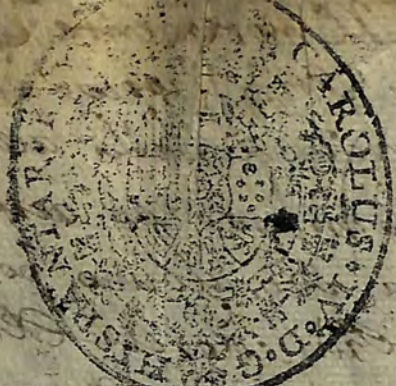 CAROLUS·IV·D·G·
HISPANIAR·R